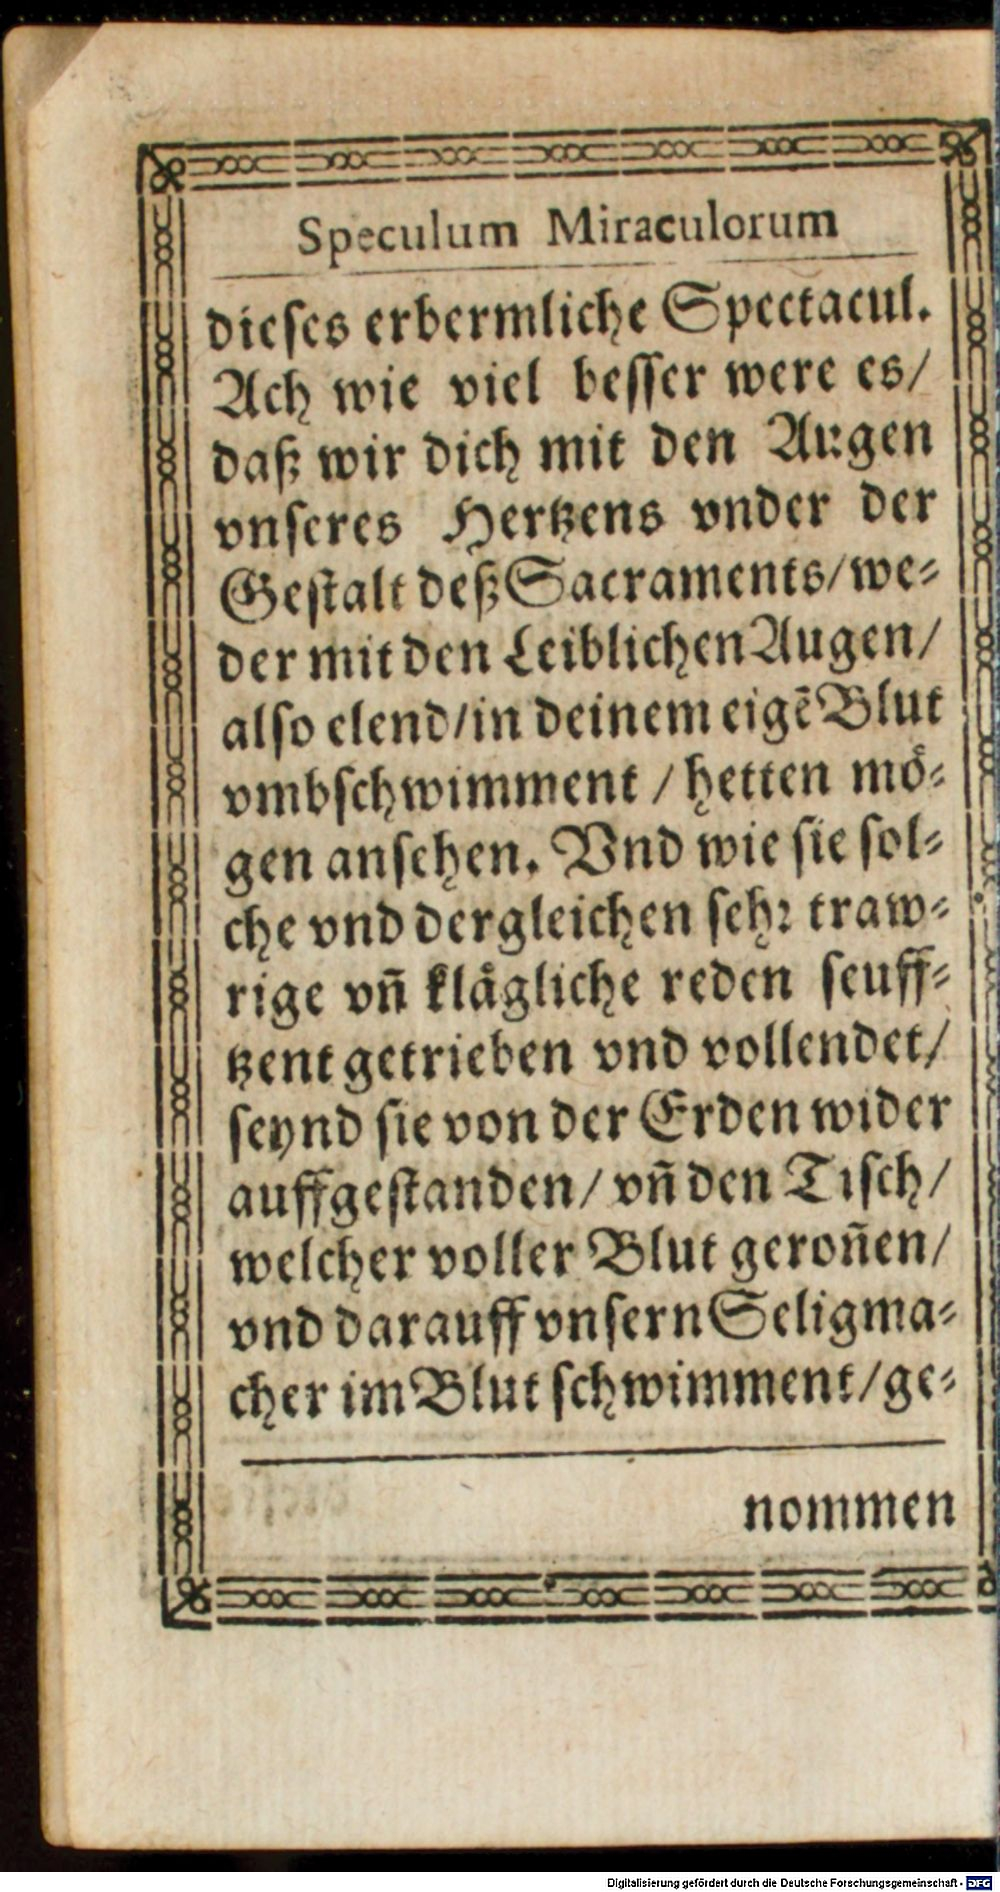 Speculum Miraculorum
dieses erbermliche Spectacul.
Ach wie viel besser were es/
daß wir dich mit den Augen
vnseres Hertzens vnder der
Gestalt deß Sacraments/ we-
der mit den Leiblichen Augen/
also elend/ in deinem eigẽ Blut
vmbschwimment / hetten mö-
gen ansehen. Vnd wie sie sol-
che vnd dergleichen sehr traw-
rige vñ klägliche reden seuff-
tzent getrieben vnd vollendet/
seynd sie von der Erden wider
auffgestanden/ vñ den Tisch/
welcher voller Blut geroñen/
vnd darauff vnsern Seligma-
cher im Blut schwimment/ ge-
nommen
Digitalisierung gefördert durch die Deutsche Forschungsgemeinschaft - DFG